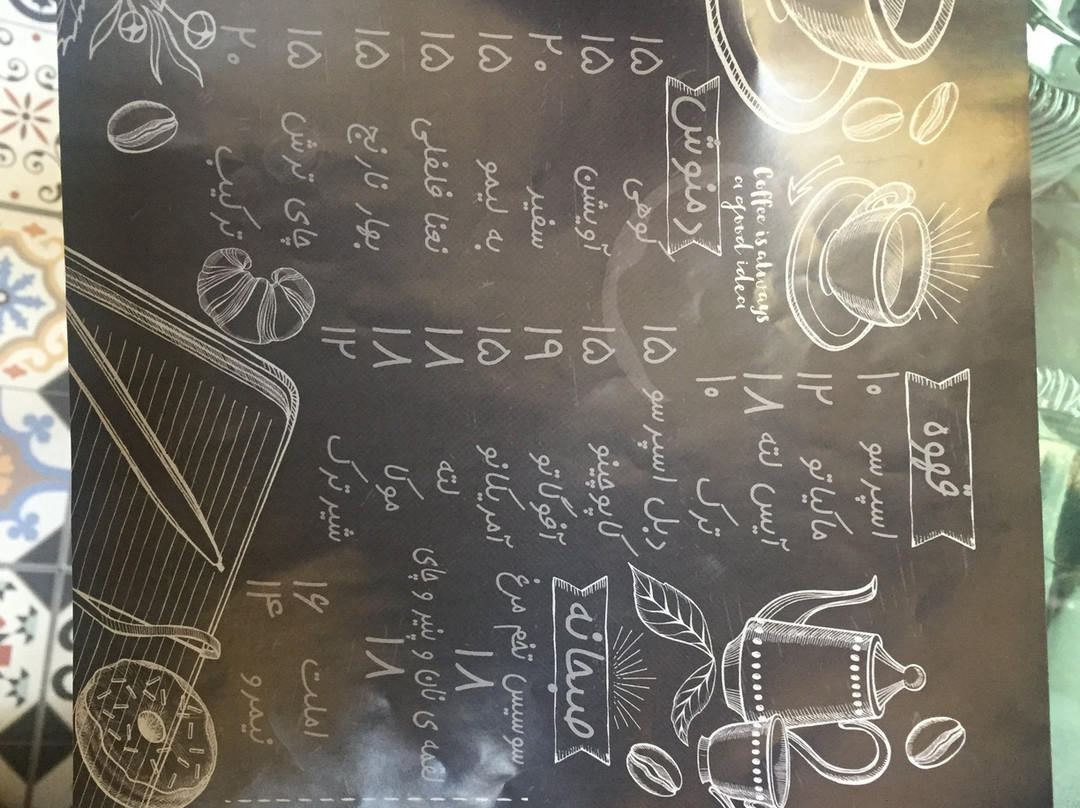 قهوه
اسپرسو ۱۰
ماکیاتو ۱۲
آیس لته ۱۸
ترک ۱۰
دبل اسپرسو ۱۵
کاپوچینو ۱۵
آفوگاتو ۱۹
آمریکانو ۱۵
لته ۱۸
موکا ۱۸
شیر ترک ۱۲
صبحانه
سوسیس تخم مرغ
۱۸
لقمه ی نان و پنیر و چای
۱۸
املت ۱۶
نیمرو ۱۴
Coffee is always
a good idea
دمنوش
کوهی ۱۵
آویشن ۱۵
سفید ۲۰
به لیمو ۱۵
نعنا فلفلی ۱۵
بهار نارنج ۱۵
چای ترش ۱۵
ترکیب ۲۰